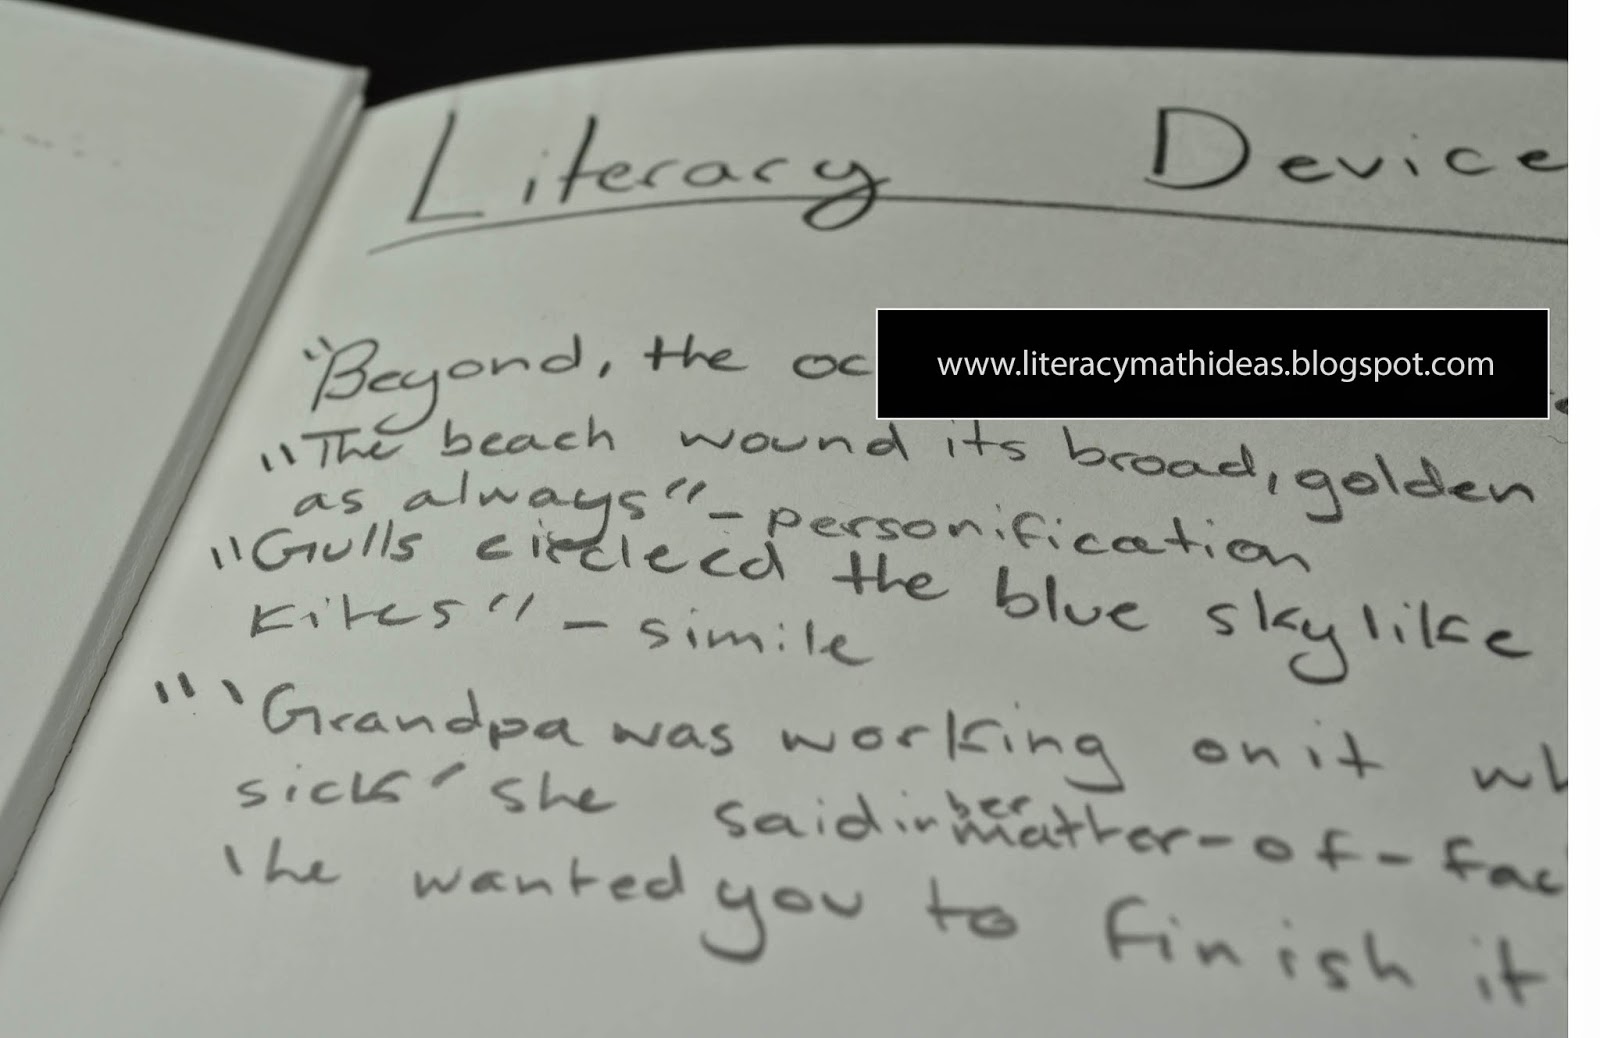 Literacy Device
"Beyond, the oc
www.literacymathideas.blogspot.com
"The beach wound its broad, golden
as always" - personification
"Gulls circleed the blue sky like
kites" - simile
"'Grandpa was working on it wh
sick' she said in her matter-of-fac
'he wanted you to finish it